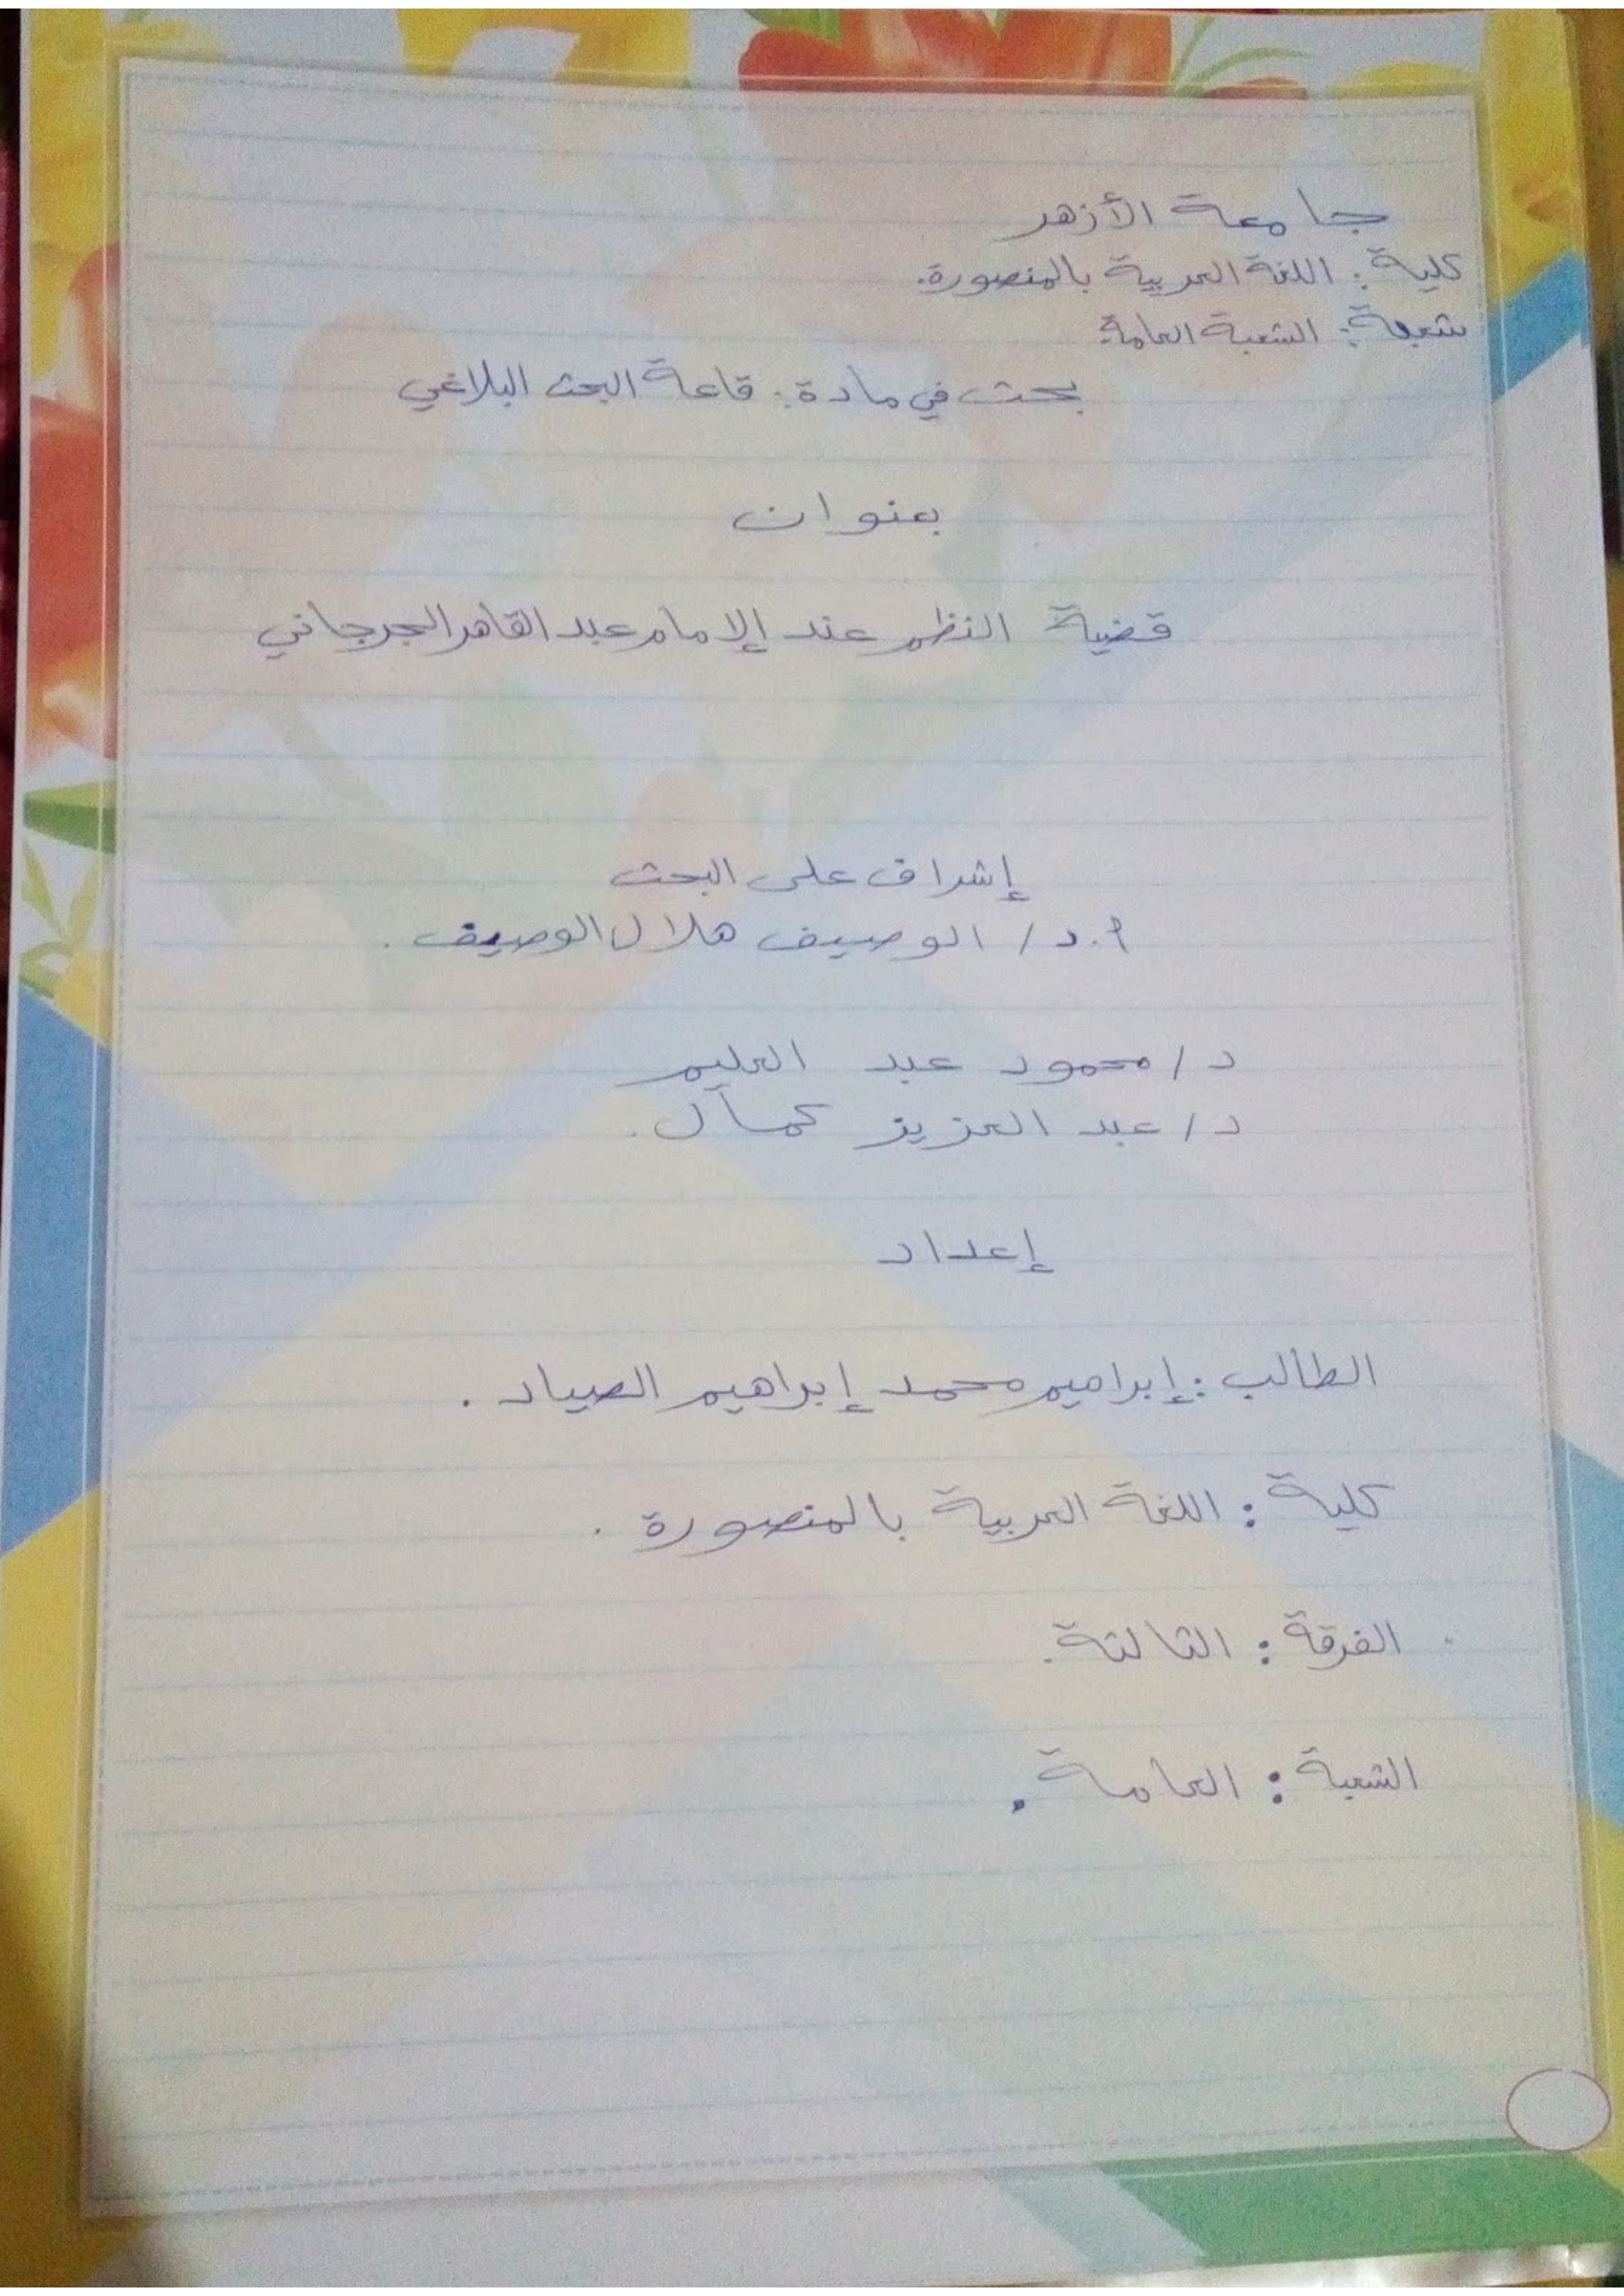 جامعة الأزهر
كلية: اللغة العربية بالمنصورة.
شعبة: الشعبة العامة
بحث في مادة: قاعة البحث البلاغي
بعنوان
قضية النظم عند الإمام عبد القاهر الجرجاني
إشراف على البحث
أ.د/ الوصيف هلال الوصيف.
د/ محمود عبد العليم
د/ عبد العزيز كمال.
إعداد
الطالب: إبراهيم محمد إبراهيم الصياد.
كلية: اللغة العربية بالمنصورة.
الفرقة: الثالثة.
الشعبة: العامة.